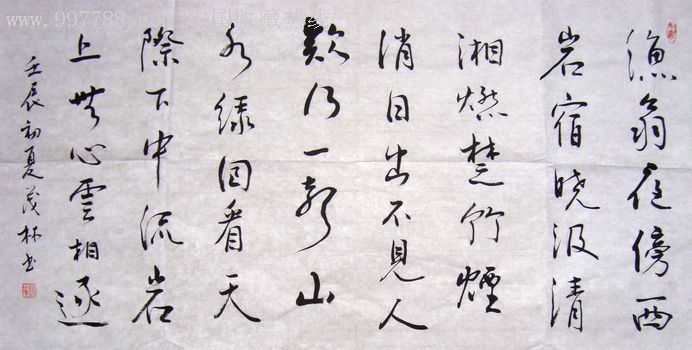 漁翁夜傍西
岩宿晓汲清
湘燃楚竹煙
消日出不見人
欸乃一声山
水绿回看天
際下中流岩
上無心雲相逐
壬辰初夏茂林书
www.997788